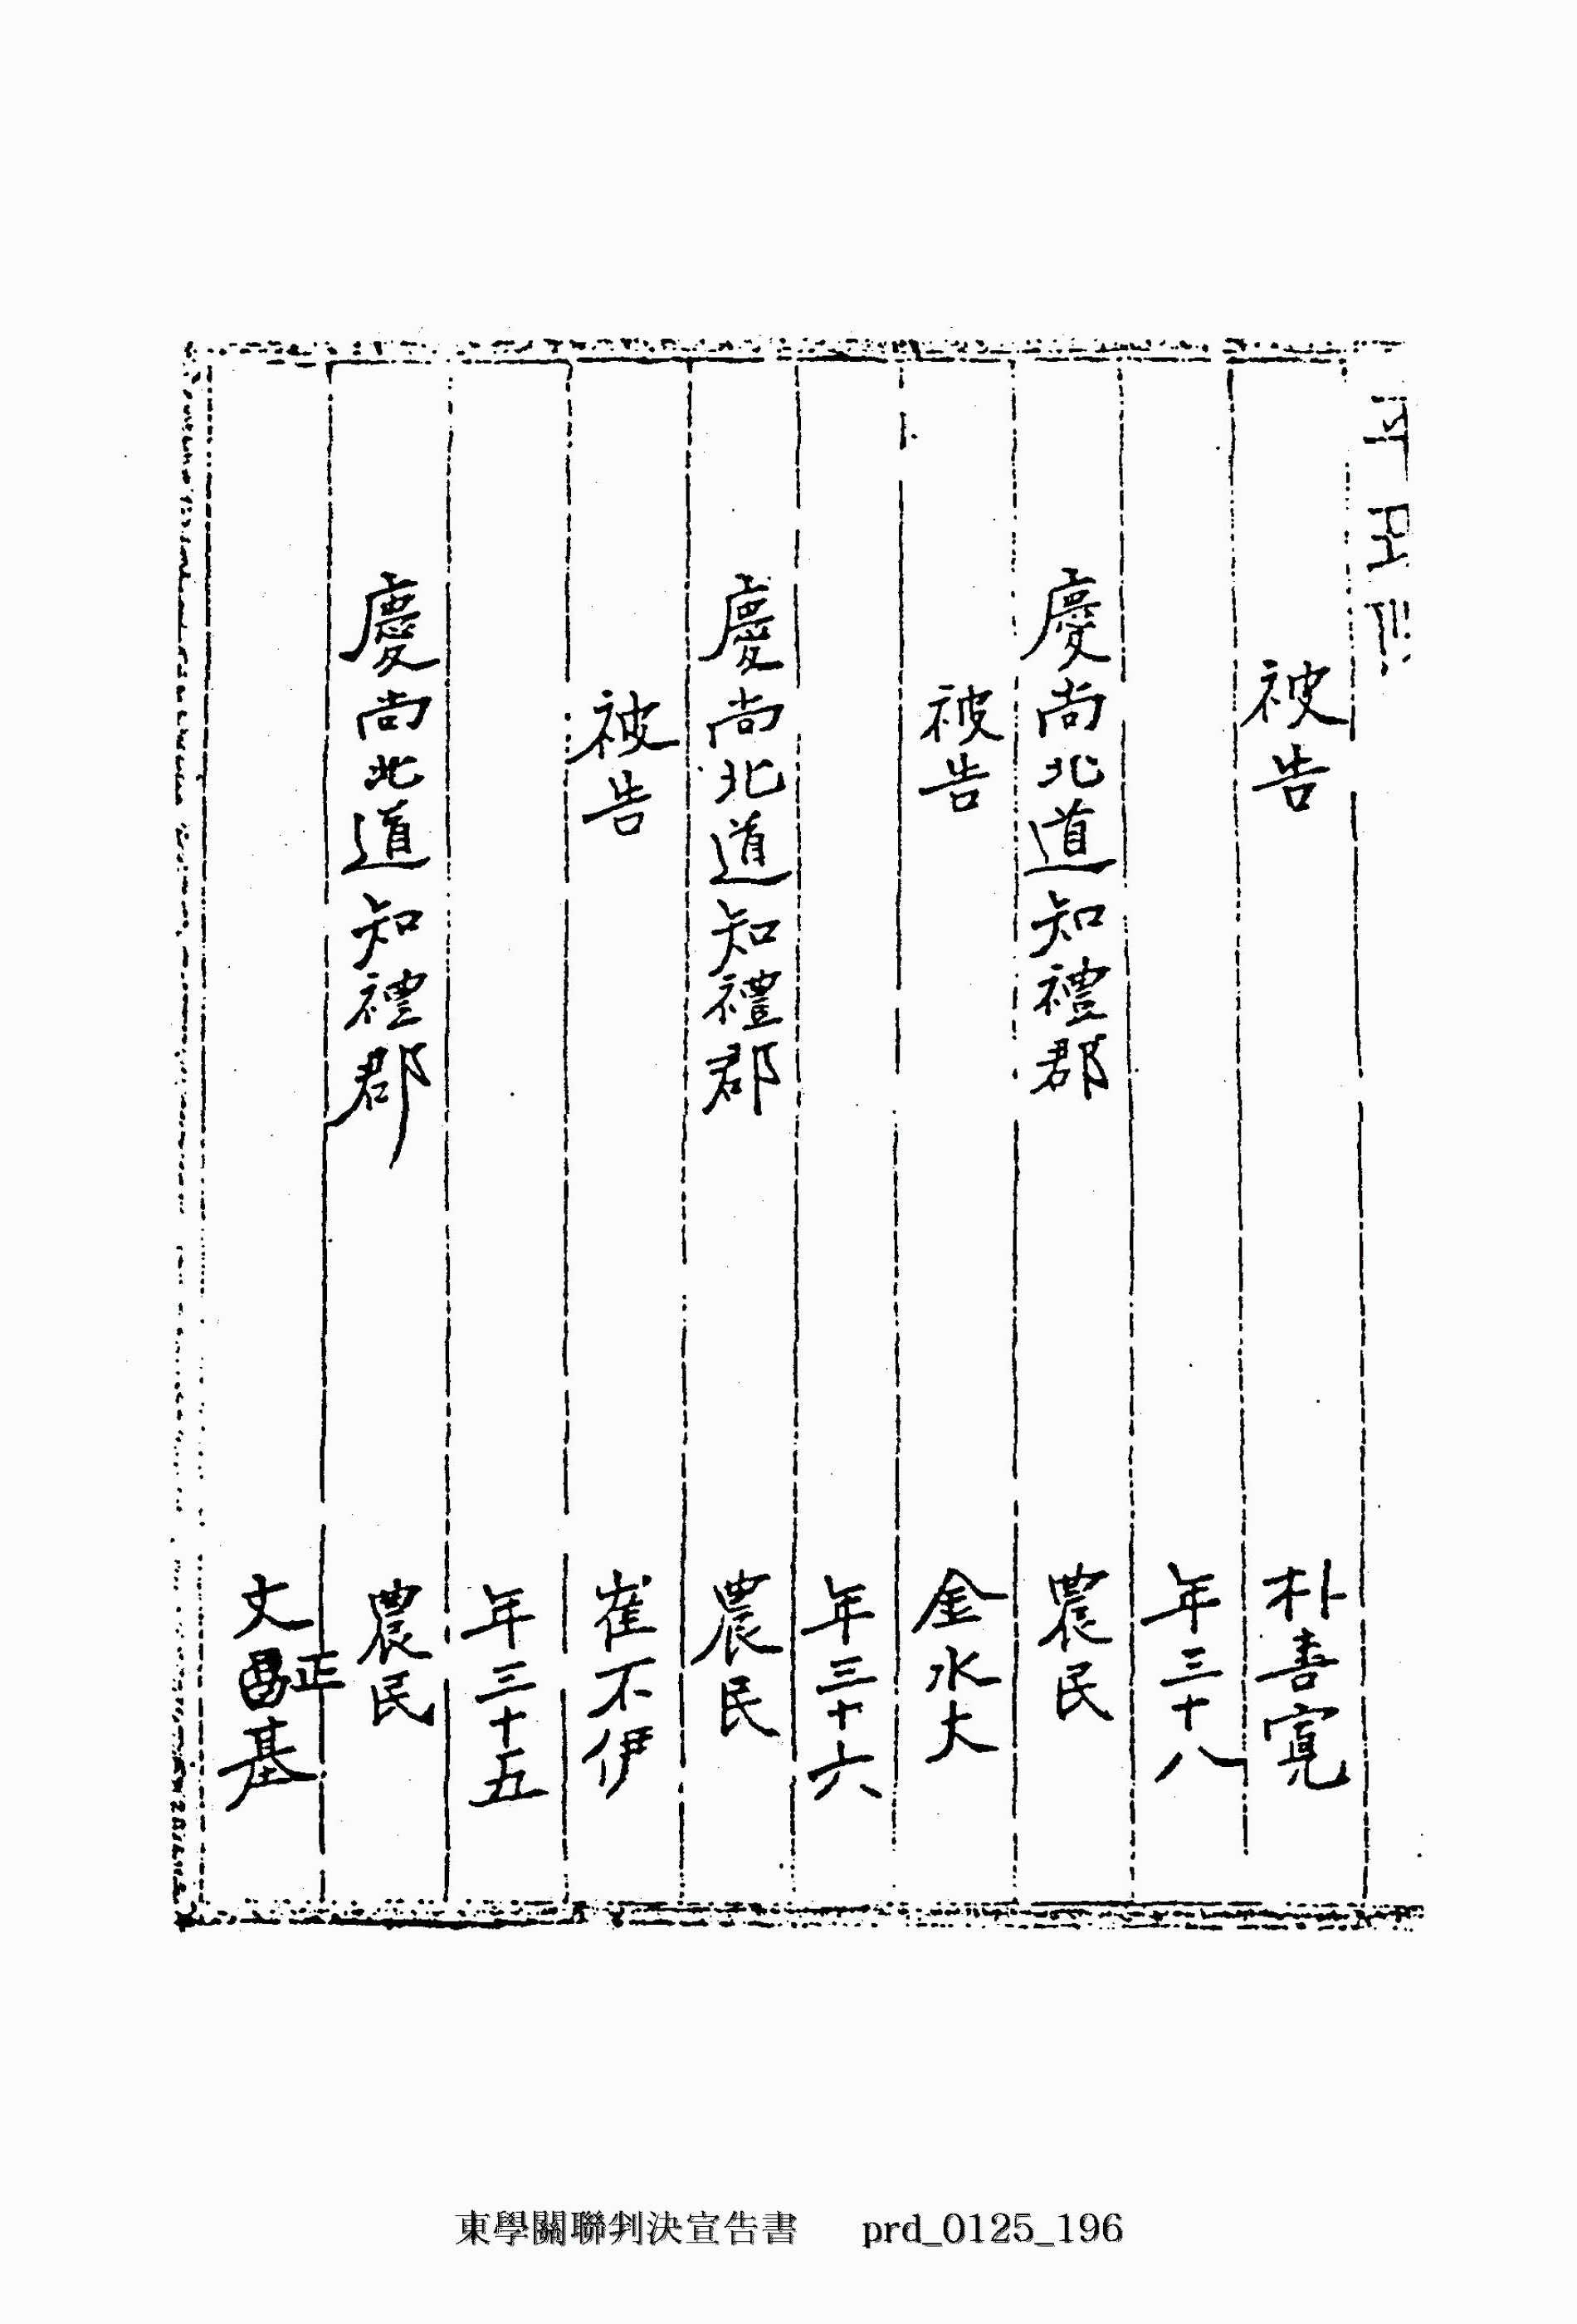 被告 朴善寬
年三十八
慶尚北道知禮郡 農民
被告 金水大
年三十六
慶尚北道知禮郡 農民
被告 崔不伊
年三十五
慶尚北道知禮郡 農民
文正基
東學關聯判決宣告書 prd_0125_196